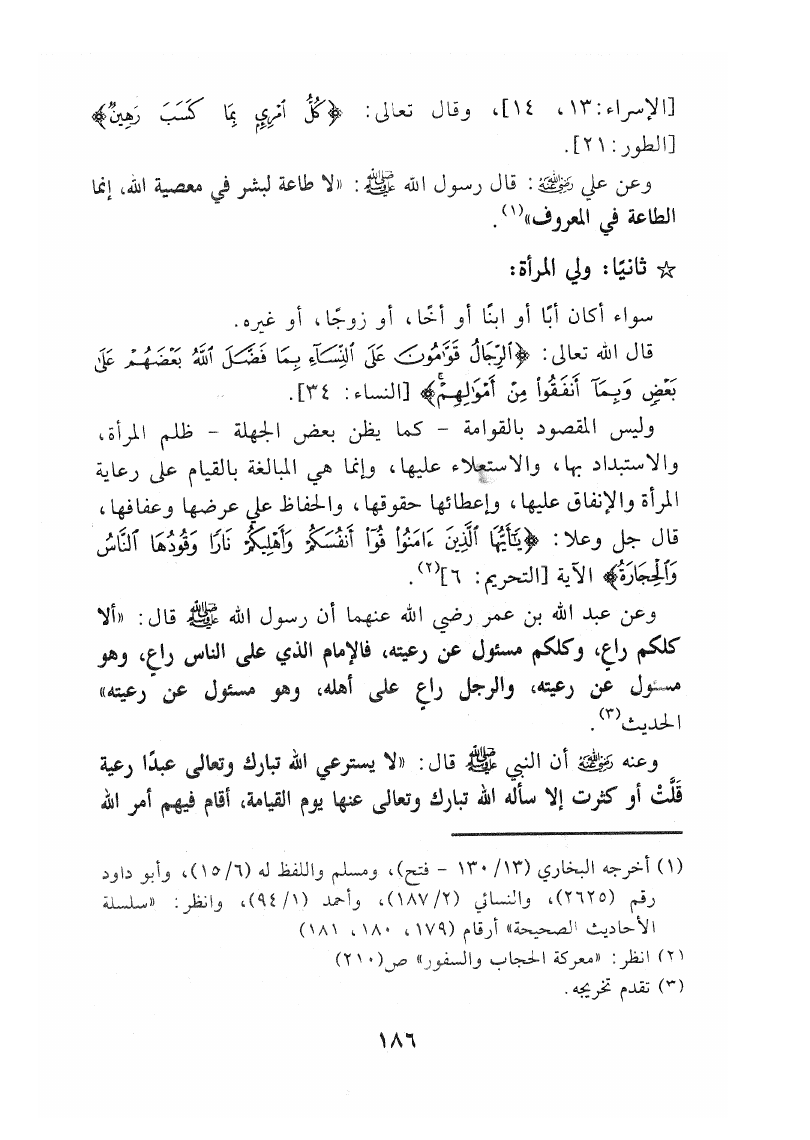 [الإسراء: ١٣، ١٤]، وقال تعالى: ﴿كُلُّ ٱمْرِيِٕۭ بِمَا كَسَبَ رَهِينٌ﴾
[الطور: ٢١].
وعن علي رضي الله عنه: قال رسول الله ﷺ: «لا طاعة لبشر في معصية الله، إنما
الطاعة في المعروف»(١).
☆ ثانيًا: ولي المرأة:
سواء أكان أبًا أو ابنًا أو أخًا، أو زوجًا، أو غيره.
قال الله تعالى: ﴿ٱلرِّجَالُ قَوَّٰمُونَ عَلَى ٱلنِّسَآءِ بِمَا فَضَّلَ ٱللَّهُ بَعْضَهُمْ عَلَىٰ
بَعْضٍ وَبِمَآ أَنفَقُوا۟ مِنْ أَمْوَٰلِهِمْ ۚ﴾ [النساء: ٣٤].
وليس المقصود بالقوامة - كما يظن بعض الجهلة - ظلم المرأة،
والاستبداد بها، والاستعلاء عليها، وإنما هي المبالغة بالقيام على رعاية
المرأة والإنفاق عليها، وإعطائها حقوقها، والحفاظ على عرضها وعفافها،
قال جل وعلا: ﴿يَٰٓأَيُّهَا ٱلَّذِينَ ءَامَنُوا۟ قُوٓا۟ أَنفُسَكُمْ وَأَهْلِيكُمْ نَارًا وَقُودُهَا ٱلنَّاسُ
وَٱلْحِجَارَةُ﴾ الآية [التحريم: ٦](٢).
وعن عبد الله بن عمر رضي الله عنهما أن رسول الله ﷺ قال: «ألا
كلكم راع، وكلكم مسئول عن رعيته، فالإمام الذي على الناس راع، وهو
مسئول عن رعيته، والرجل راع على أهله، وهو مسئول عن رعيته»
الحديث(٣).
وعنه رضي الله عنه أن النبي ﷺ قال: «لا يسترعي الله تبارك وتعالى عبدًا رعية
قَلَّتْ أو كثرت إلا سأله الله تبارك وتعالى عنها يوم القيامة، أقام فيهم أمر الله
(١) أخرجه البخاري (١٣/ ١٣٠ - فتح)، ومسلم واللفظ له (٦/ ١٥)، وأبو داود
رقم (٢٦٢٥)، والنسائي (٢/ ١٨٧)، وأحمد (١/ ٩٤)، وانظر: «سلسلة
الأحاديث الصحيحة» أرقام (١٧٩، ١٨٠، ١٨١)
(٢) انظر: «معركة الحجاب والسفور» ص(٢١٠)
(٣) تقدم تخريجه.
١٨٦